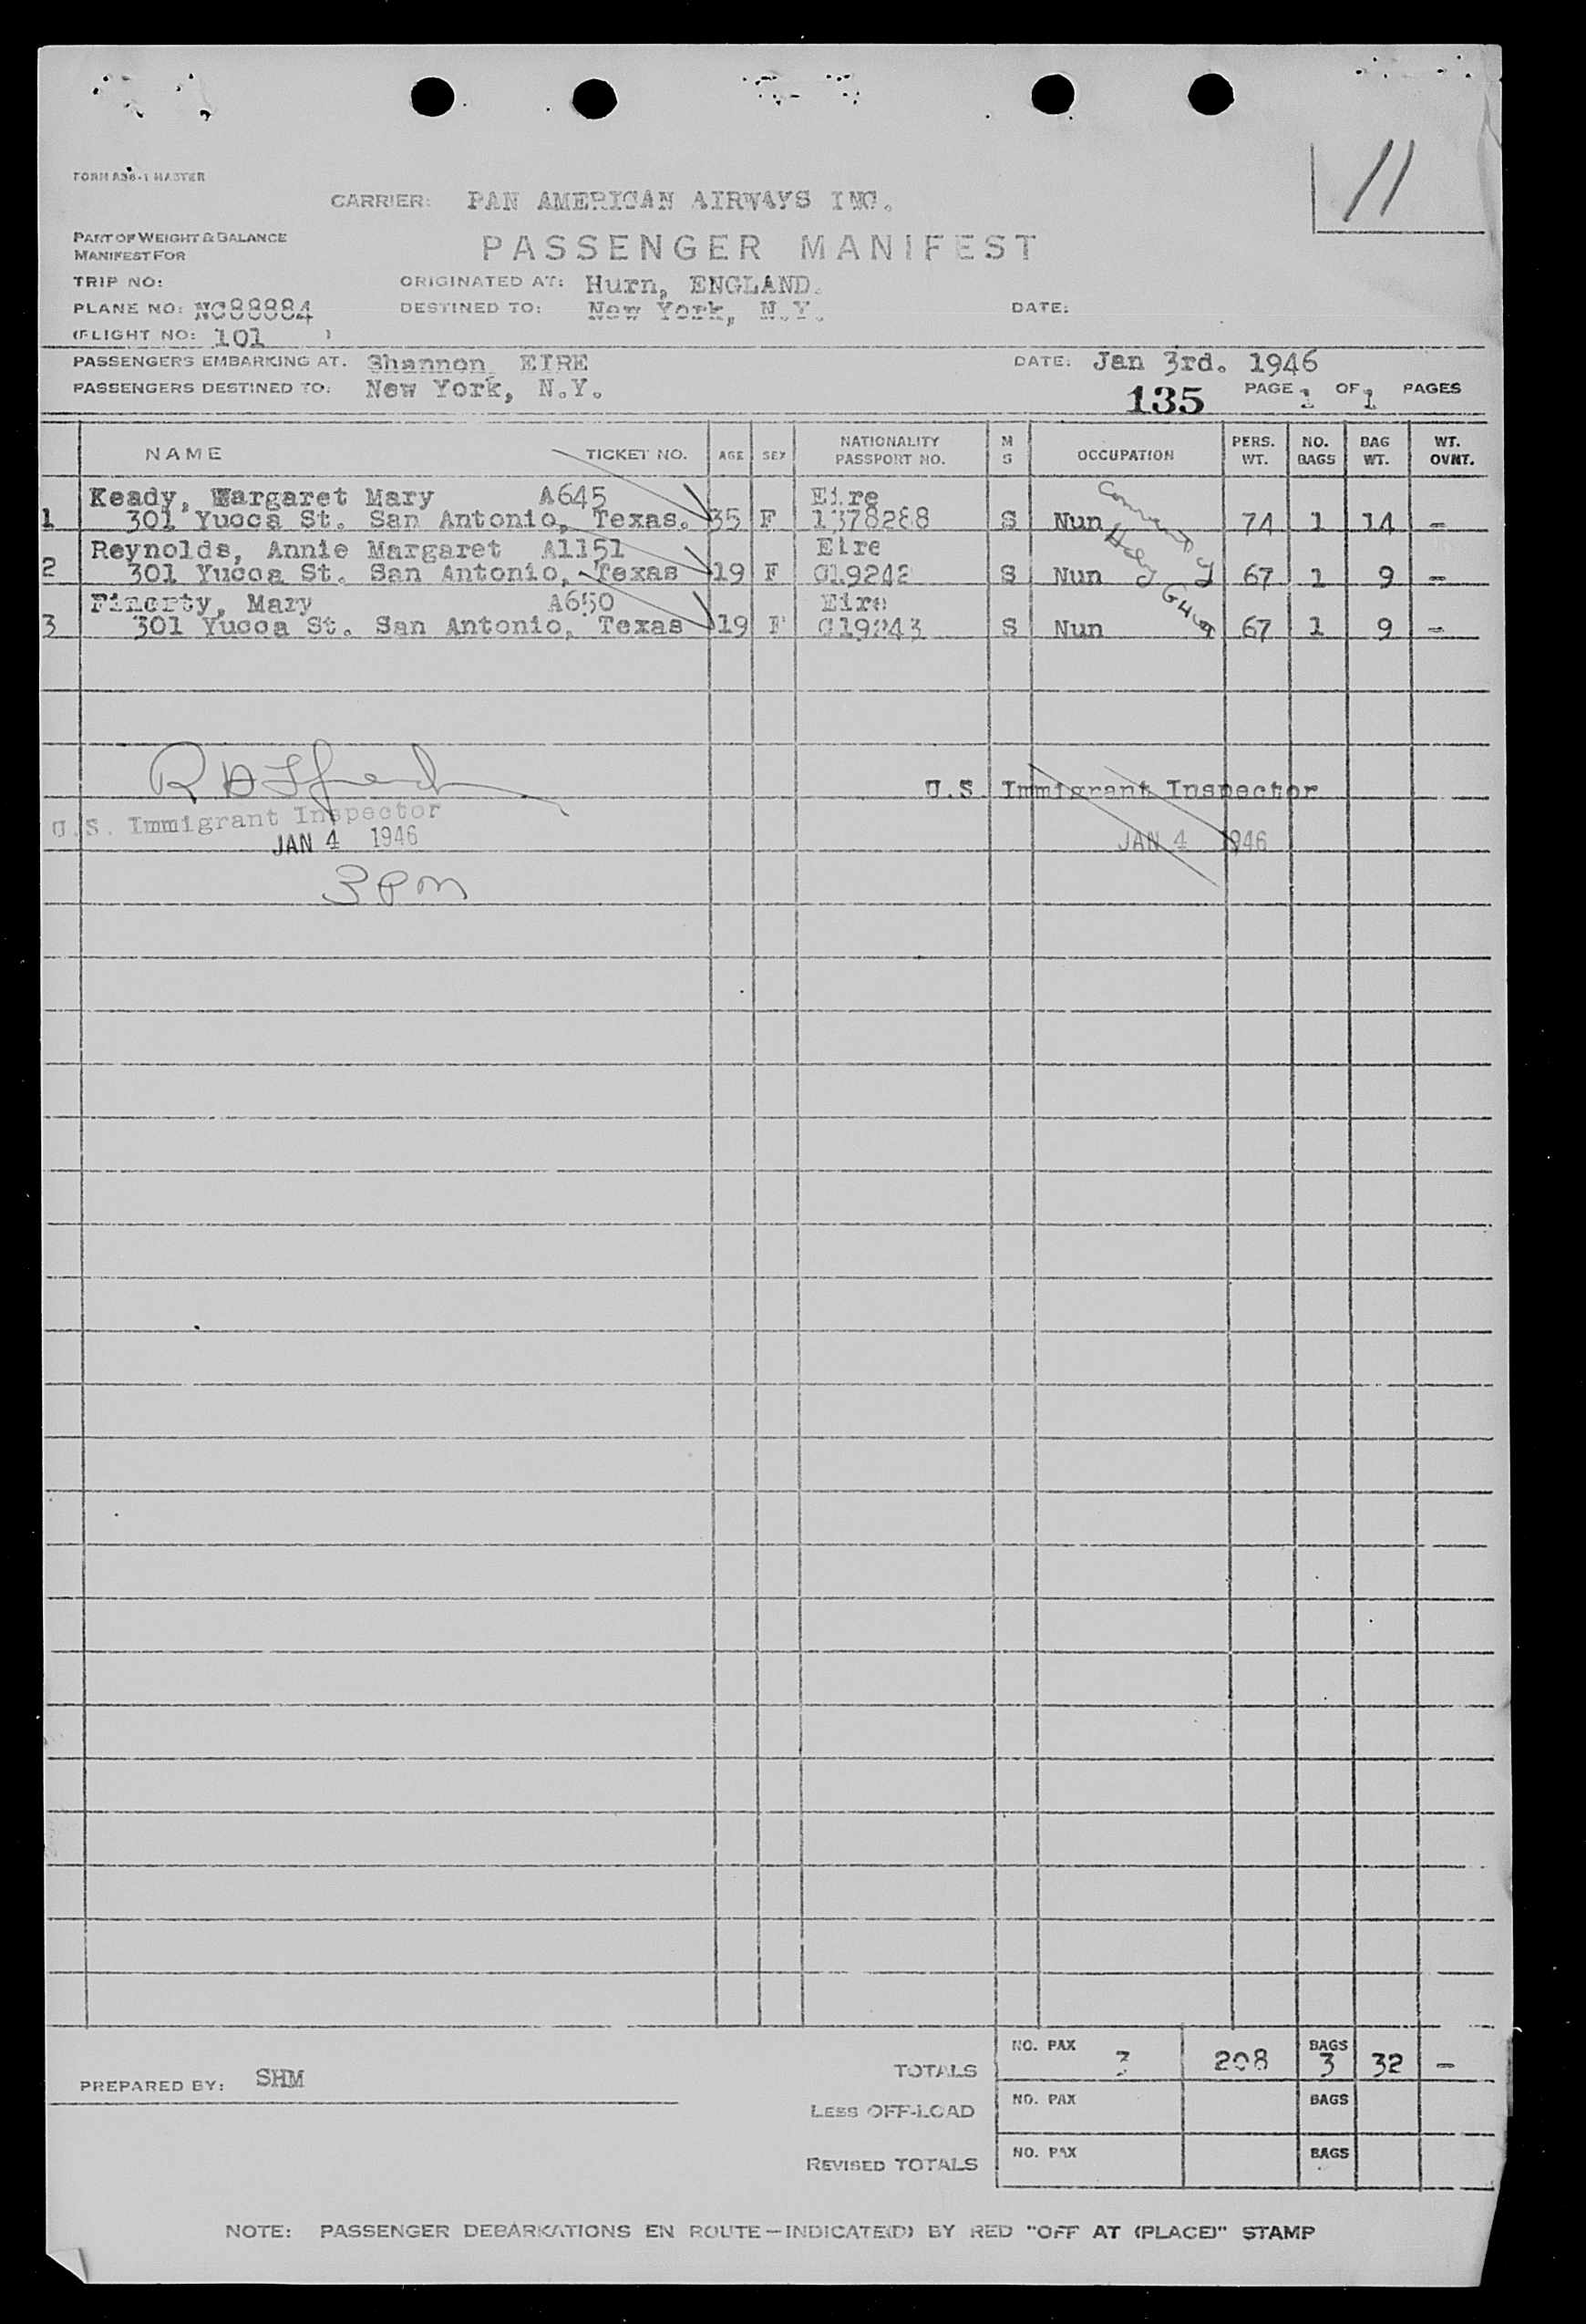 11
FORM A36-1 MASTER
CARRIER: PAN AMERICAN AIRWAYS INC.
PART OF WEIGHT & BALANCE
MANIFEST FOR
PASSENGER MANIFEST
TRIP NO:
ORIGINATED AT: Hurn, ENGLAND.
PLANE NO: NC88884
DESTINED TO: New York, N.Y.
DATE:
(FLIGHT NO: 101 )
PASSENGERS EMBARKING AT. Shannon, EIRE DATE: Jan 3rd. 1946
PASSENGERS DESTINED TO: New York, N.Y. 135 PAGE 1 OF 1 PAGES
NAME TICKET NO. AGE SEX NATIONALITY PASSPORT NO. M S OCCUPATION PERS. WT. NO. BAGS BAG WT. WT. OVHT.
Keady, Margaret Mary A645 Eire
1 301 Yucca St. San Antonio, Texas. 35 F 1378288 S Nun 74 1 14 -
Reynolds, Annie Margaret A1151 Eire
2 301 Yucca St. San Antonio, Texas 19 F G19242 S Nun 67 1 9 -
Finerty, Mary A650 Eire
3 301 Yucca St. San Antonio, Texas 19 F G19243 S Nun 67 1 9 -
Holy Ghost
U.S. Immigrant Inspector
JAN 4 1946
3 PM
U.S. Immigrant Inspector
JAN 4 1946
TOTALS NO. PAX 3 208 BAGS 3 32 -
PREPARED BY: SHM
LESS OFF-LOAD NO. PAX BAGS
REVISED TOTALS NO. PAX BAGS
NOTE: PASSENGER DEBARKATIONS EN ROUTE—INDICATE(D) BY RED "OFF AT (PLACE)" STAMP